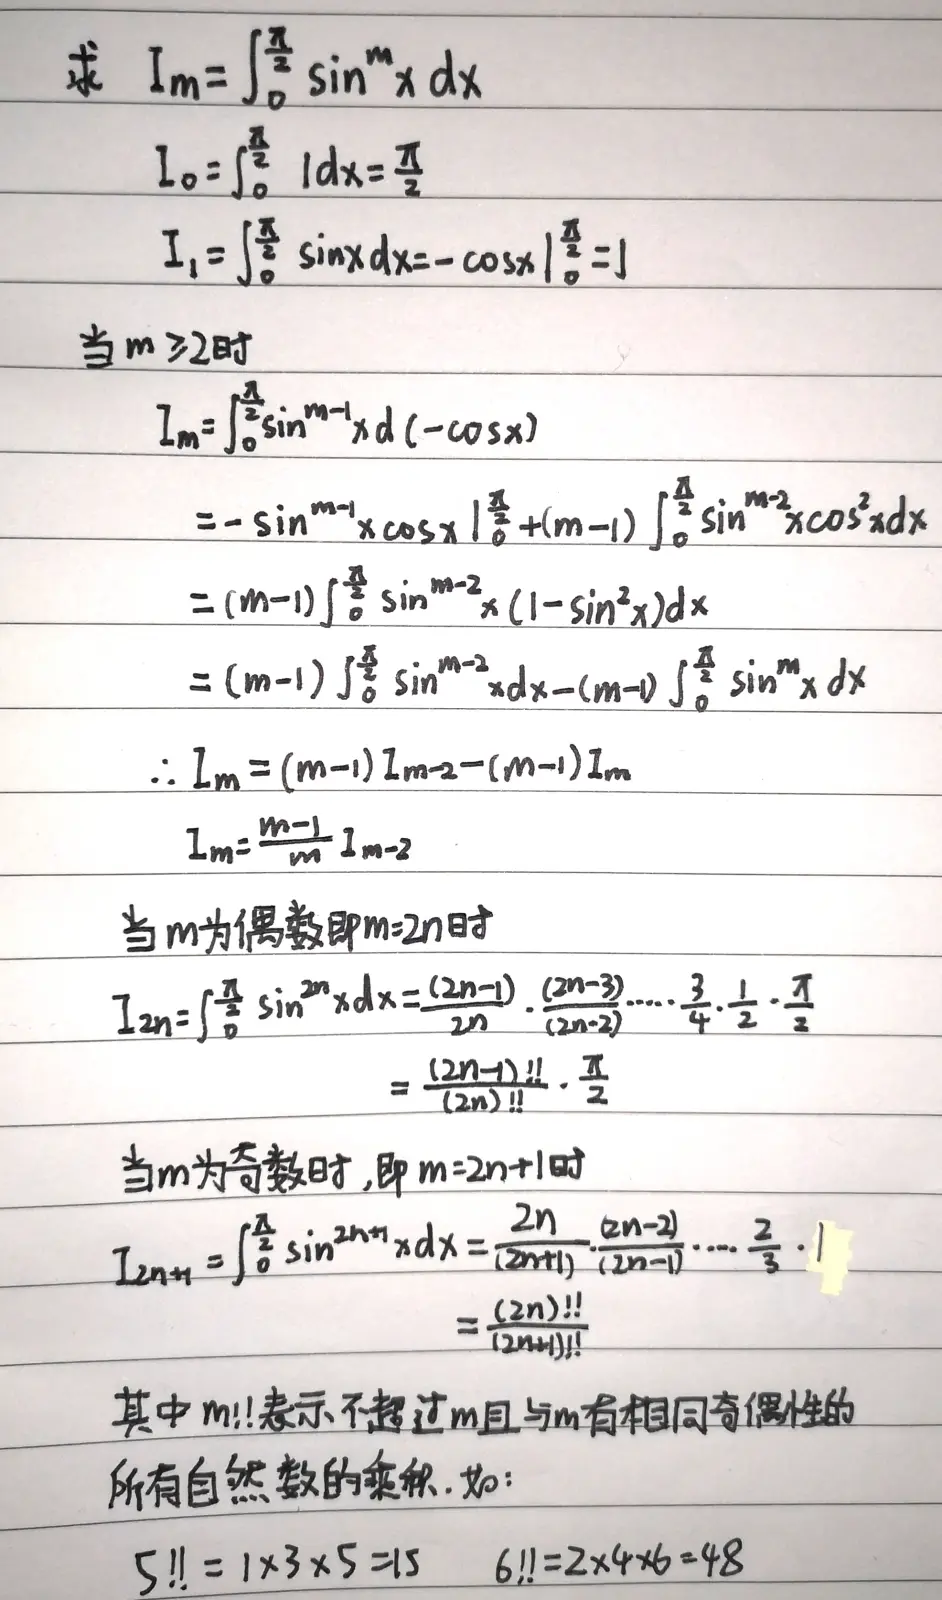 求 I_m = ∫_0^{π/2} sin^m x dx
I_0 = ∫_0^{π/2} 1dx = π/2
I_1 = ∫_0^{π/2} sinxdx = -cosx |_0^{π/2} = 1
当 m ≥ 2时
I_m = ∫_0^{π/2} sin^{m-1} x d(-cosx)
= -sin^{m-1} x cosx |_0^{π/2} + (m-1) ∫_0^{π/2} sin^{m-2} x cos^2 x dx
= (m-1) ∫_0^{π/2} sin^{m-2} x (1-sin^2 x)dx
= (m-1) ∫_0^{π/2} sin^{m-2} x dx - (m-1) ∫_0^{π/2} sin^m x dx
∴ I_m = (m-1) I_{m-2} - (m-1) I_m
I_m = (m-1)/m I_{m-2}
当m为偶数即m=2n时
I_{2n} = ∫_0^{π/2} sin^{2n} x dx = (2n-1)/2n · (2n-3)/(2n-2) ····· 3/4 · 1/2 · π/2
= (2n-1)!!/(2n)!! · π/2
当m为奇数时,即m=2n+1时
I_{2n+1} = ∫_0^{π/2} sin^{2n+1} x dx = 2n/(2n+1) · (2n-2)/(2n-1) ···· 2/3 · 1
= (2n)!!/(2n+1)!!
其中m!!表示不超过m且与m有相同奇偶性的
所有自然数的乘积.如:
5!! = 1×3×5=15 6!!=2×4×6=48